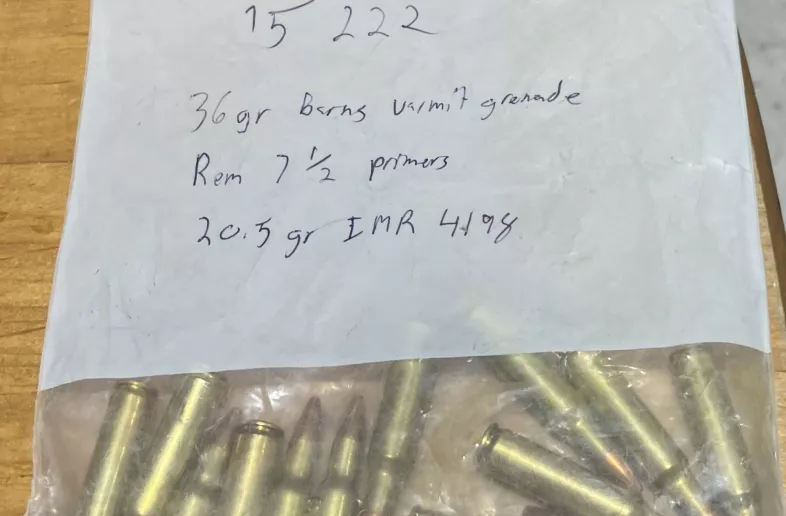 15 222
36 gr Barns varmit grenade
Rem 7 1/2 primers
20.5 gr IMR 4198